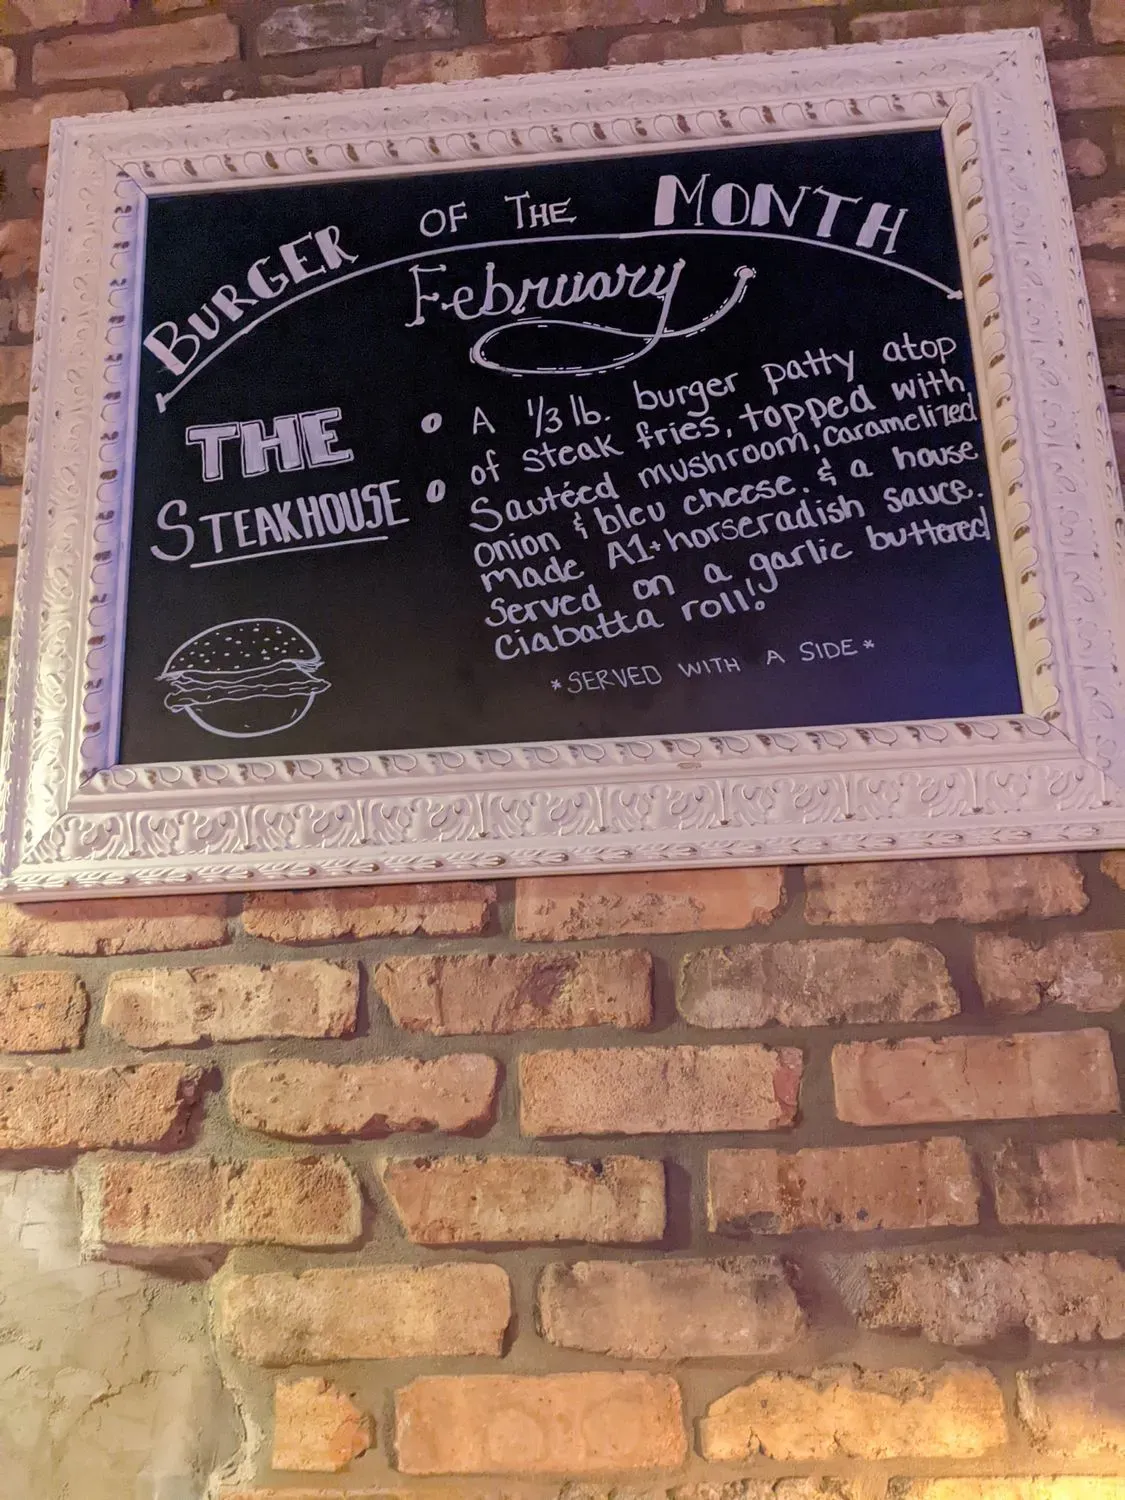 BURGER OF THE MONTH
February
THE
STEAKHOUSE
A 1/3 lb. burger patty atop
of steak fries, topped with
Sautéed mushroom, caramelized
onion & bleu cheese. & a house
made A1+horseradish sauce.
Served on a garlic buttered
Ciabatta roll!
*SERVED WITH A SIDE*